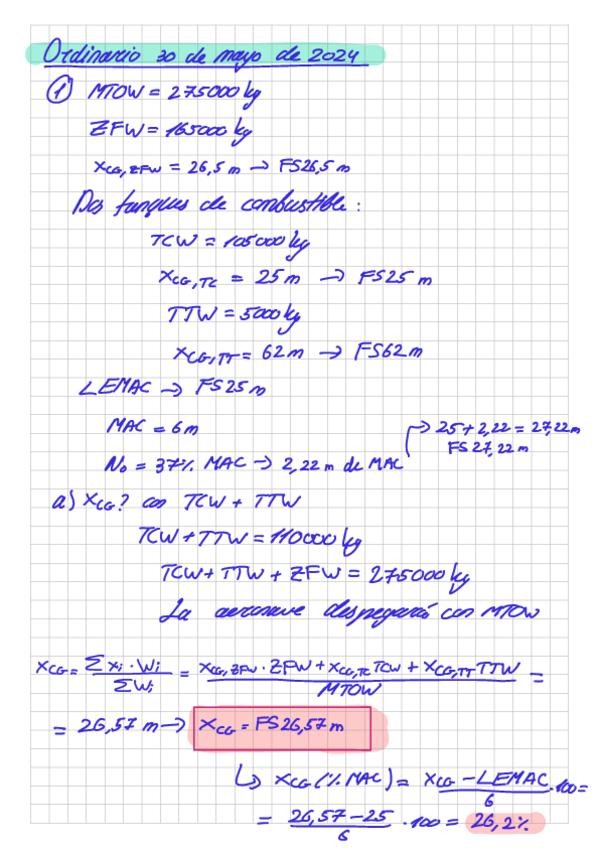 Ordinario 30 de mayo de 2024
① MTOW = 275000 kg
ZFW = 165000 kg
XCG,ZFW = 26,5 m → FS26,5 m
Dos tanques de combustible:
TCW = 105000 kg
XCG,TC = 25 m → FS25 m
TTW = 5000 kg
XCG,TT = 62 m → FS62 m
LEMAC → FS25 m
MAC = 6 m
→ 25 + 2,22 = 27,22 m
FS 27,22 m
No = 37% MAC → 2,22 m de MAC
a) XCG? con TCW + TTW
TCW + TTW = 110000 kg
TCW + TTW + ZFW = 275000 kg
La aeronave despegará con MTOW
XCG = Σ xi · Wi / Σ Wi = XCG,ZFW · ZFW + XCG,TC TCW + XCG,TT TTW / MTOW =
= 26,57 m → XCG = FS26,57 m
↳ XCG (% MAC) = XCG - LEMAC / 6 · 100 =
= 26,57 - 25 / 6 · 100 = 26,2%